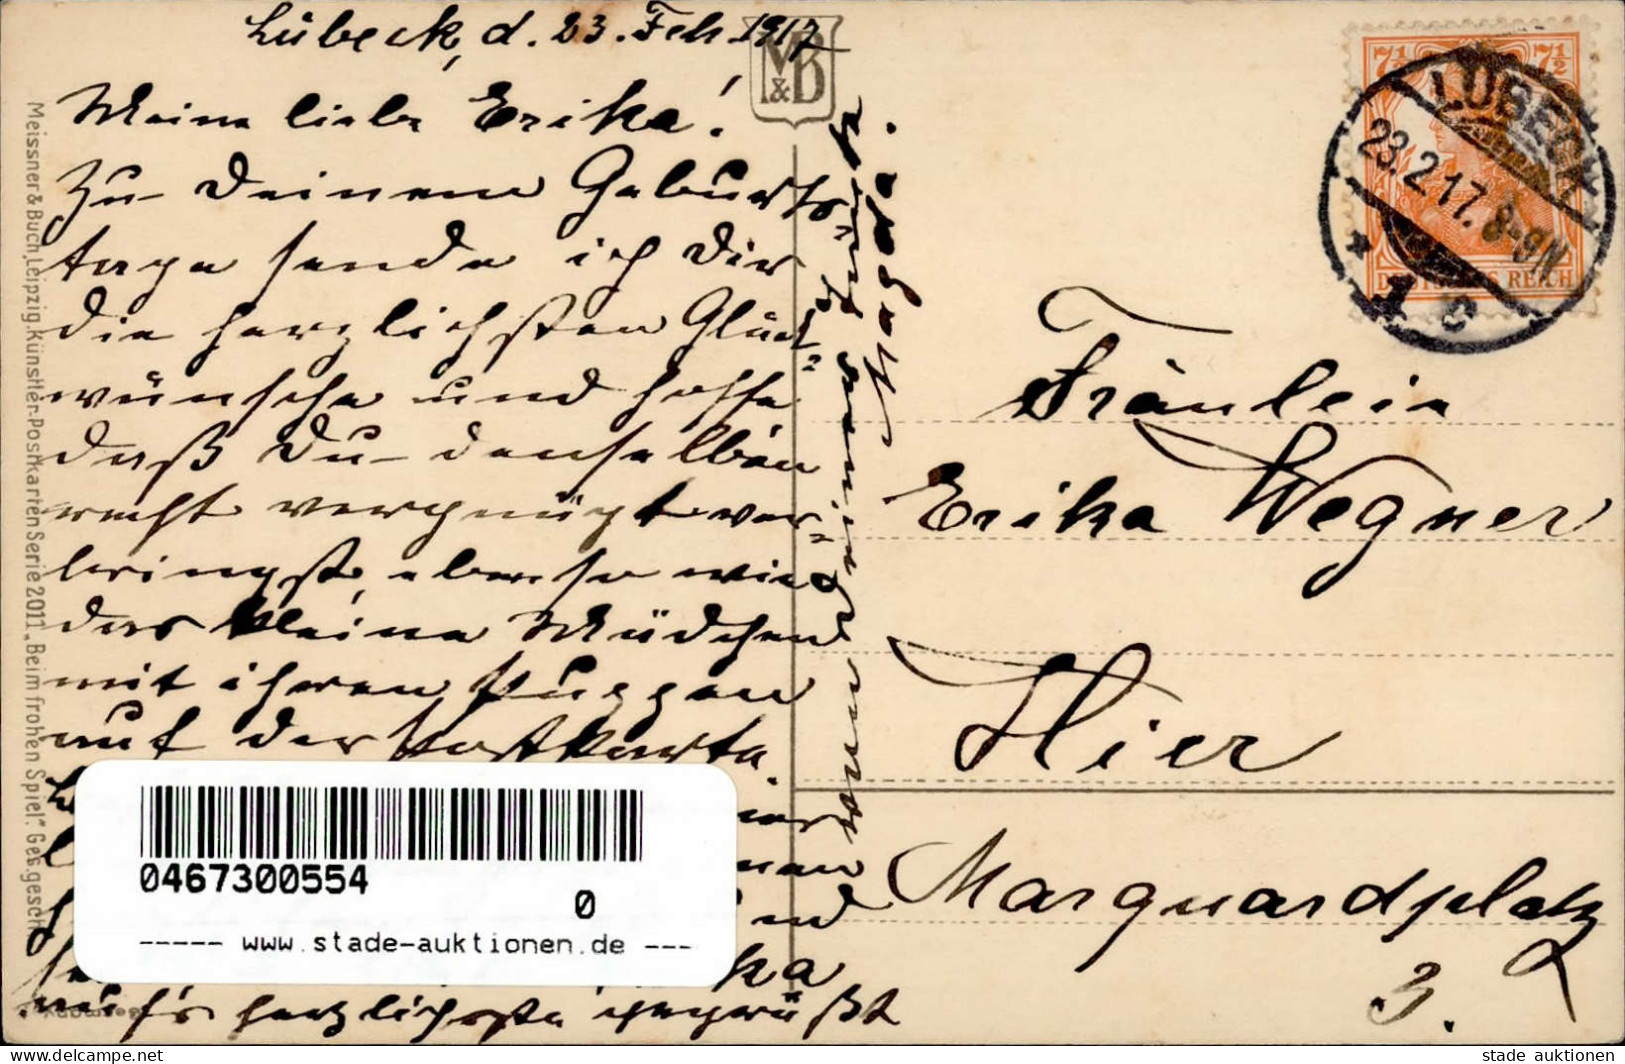 Lübeck, d. 23. Feb. 1917
M&B
Meine liebe Erika!
Zu Deinem Geburts-
tage sende ich Dir
die herzlichsten Glück-
wünsche und hoffe
daß Du denselben
recht vergnügt ver-
bringst, ebenso wie
das kleine Mädchen
mit ihren Puppen
auf der Postkarte.
sei
auf's herzlichste gegrüßt
von Deiner Tante
Magda.
Meissner & Buch, Leipzig. Künstler-Postkarten Serie 2011 „Beim frohen Spiel." Ges. gesch.
7½ 7½
DEUTSCHES REICH
LÜBECK
23.2.17. 8-9N
* 1 c
Fräulein
Erika Wegner
Hier
Marquardplatz
3.
0467300554
0
----- www.stade-auktionen.de ---
delcampe.net
stade auktionen